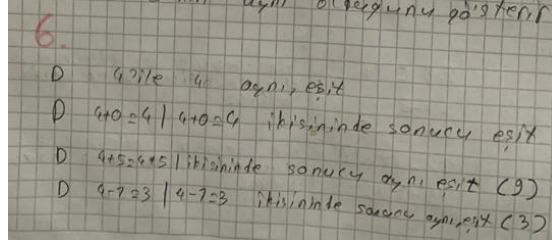 aynı olduğunu gösterir
6.
D 4 ile 4 aynı, eşit
D 4+0=4 | 4+0=4 ikisininde sonucu eşit
D 4+5=4+5 | ikisininde sonucu aynı eşit (9)
D 4-1=3 | 4-1=3 ikisininde sonucu aynı, eşit (3)